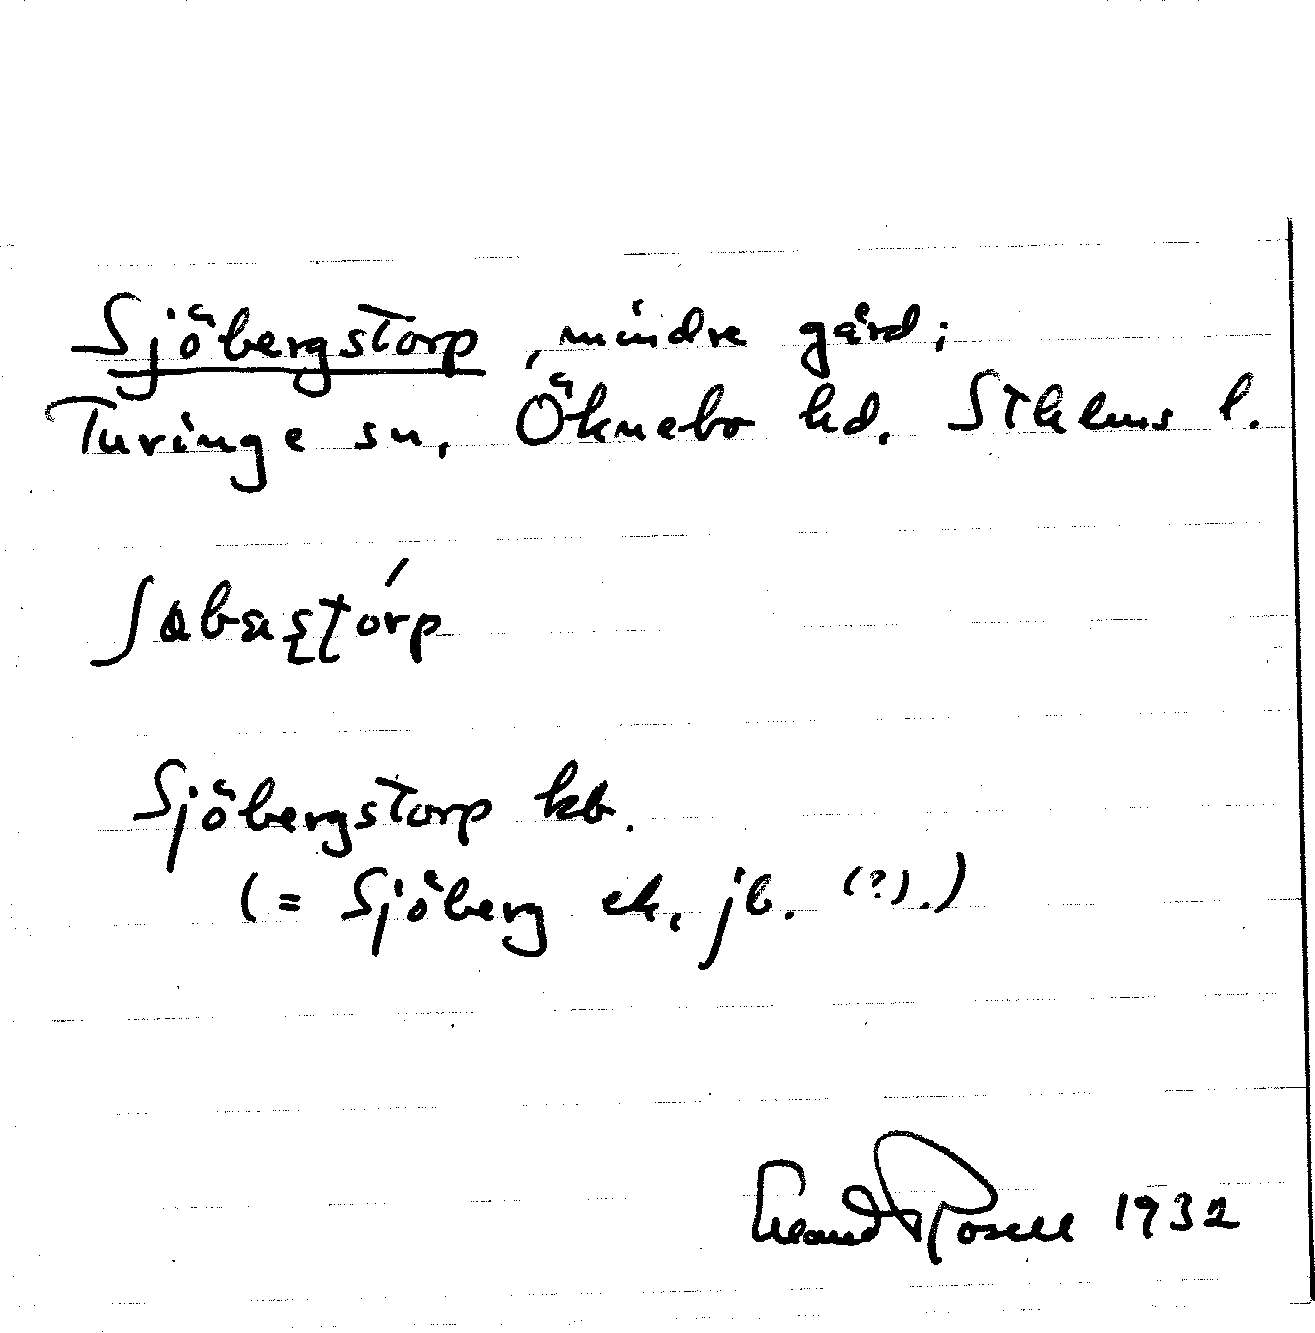 Sjöbergstorp, mindre gård;
Turinge sn, Öknebo hd, Sthlms l.
Sjöbergstorp kb.
(= Sjöberg ek, jb. (?).)
Rosell 1932